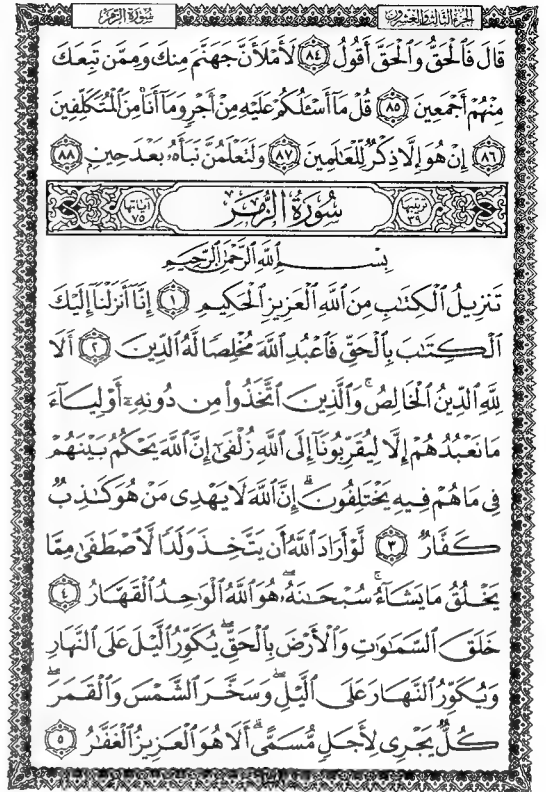 سُورَةُ الزُّمَرِ
الجُزْءُ الثَّالِثُ وَالعِشْرُونَ
قَالَ فَٱلْحَقُّ وَٱلْحَقَّ أَقُولُ ٨٤ لَأَمْلَأَنَّ جَهَنَّمَ مِنكَ وَمِمَّن تَبِعَكَ
مِنْهُمْ أَجْمَعِينَ ٨٥ قُلْ مَآ أَسْـَٔلُكُمْ عَلَيْهِ مِنْ أَجْرٍ وَمَآ أَنَا۠ مِنَ ٱلْمُتَكَلِّفِينَ
٨٦ إِنْ هُوَ إِلَّا ذِكْرٌ لِّلْعَٰلَمِينَ ٨٧ وَلَتَعْلَمُنَّ نَبَأَهُۥ بَعْدَ حِينٍۭ ٨٨
ترتيبها ٣٩ سُورَةُ الزُّمَرِ آياتها ٧٥
بِسْمِ ٱللَّهِ ٱلرَّحْمَٰنِ ٱلرَّحِيمِ
تَنزِيلُ ٱلْكِتَٰبِ مِنَ ٱللَّهِ ٱلْعَزِيزِ ٱلْحَكِيمِ ١ إِنَّآ أَنزَلْنَآ إِلَيْكَ
ٱلْكِتَٰبَ بِٱلْحَقِّ فَٱعْبُدِ ٱللَّهَ مُخْلِصًا لَّهُ ٱلدِّينَ ٢ أَلَا
لِلَّهِ ٱلدِّينُ ٱلْخَالِصُ ۚ وَٱلَّذِينَ ٱتَّخَذُوا۟ مِن دُونِهِۦٓ أَوْلِيَآءَ
مَا نَعْبُدُهُمْ إِلَّا لِيُقَرِّبُونَآ إِلَى ٱللَّهِ زُلْفَىٰٓ إِنَّ ٱللَّهَ يَحْكُمُ بَيْنَهُمْ
فِى مَا هُمْ فِيهِ يَخْتَلِفُونَ ۗ إِنَّ ٱللَّهَ لَا يَهْدِى مَنْ هُوَ كَٰذِبٌ
كَفَّارٌ ٣ لَّوْ أَرَادَ ٱللَّهُ أَن يَتَّخِذَ وَلَدًا لَّٱصْطَفَىٰ مِمَّا
يَخْلُقُ مَا يَشَآءُ ۚ سُبْحَٰنَهُۥ ۖ هُوَ ٱللَّهُ ٱلْوَٰحِدُ ٱلْقَهَّارُ ٤
خَلَقَ ٱلسَّمَٰوَٰتِ وَٱلْأَرْضَ بِٱلْحَقِّ ۖ يُكَوِّرُ ٱلَّيْلَ عَلَى ٱلنَّهَارِ
وَيُكَوِّرُ ٱلنَّهَارَ عَلَى ٱلَّيْلِ ۖ وَسَخَّرَ ٱلشَّمْسَ وَٱلْقَمَرَ ۖ
كُلٌّ يَجْرِى لِأَجَلٍ مُّسَمًّى ۗ أَلَا هُوَ ٱلْعَزِيزُ ٱلْغَفَّٰرُ ٥